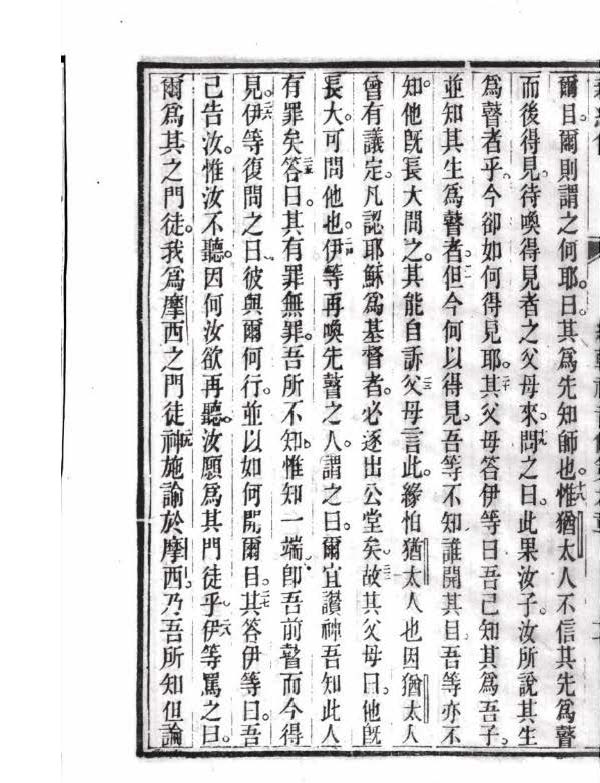 爾目爾則謂之何耶曰其爲先知師也十八惟猶太人不信其先爲瞽
而後得見待喚得見者之父母來十九問之曰此果汝子汝所說其生
爲瞽者乎今卻如何得見耶二十其父母答伊等曰吾已知其爲吾子
並知其生爲瞽者二一但今何以得見吾等不知誰開其目吾等亦不
知他既長大問之其能自訴二二父母言此緣怕猶太人也因猶太人
曾有議定凡認耶穌爲基督者必逐出公堂矣二三故其父母曰他既
長大可問他也二四伊等再喚先瞽之人謂之曰爾宜讚神吾知此人
有罪矣二五答曰其有罪無罪吾所不知惟知一端卽吾前瞽而今得
見二六伊等復問之曰彼與爾何行並以如何開爾目二七其答伊等曰吾
己告汝惟汝不聽因何汝欲再聽汝願爲其門徒乎二八伊等罵之曰
爾爲其之門徒我爲摩西之門徒二九神施諭於摩西乃吾所知但論